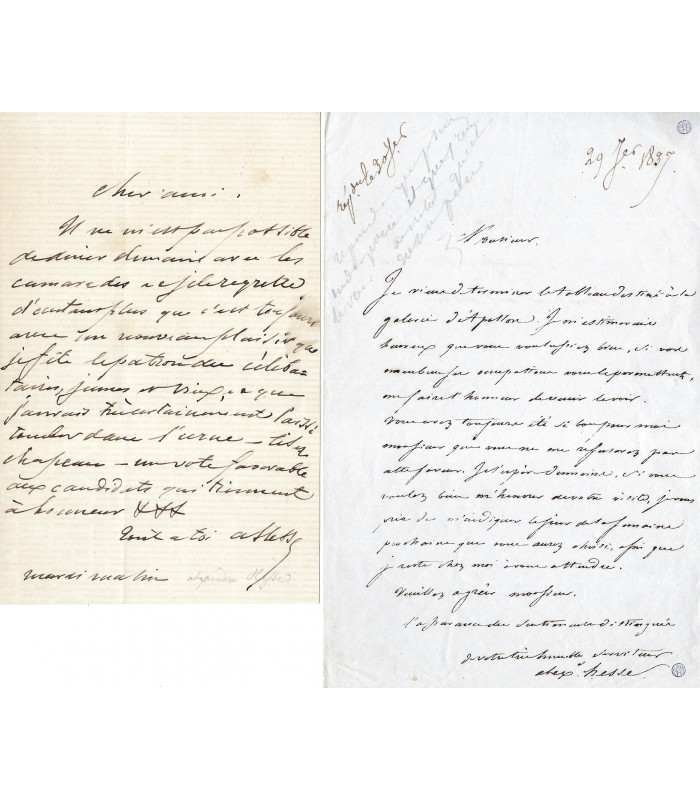 Cher ami.
Il ne m'est pas possible
de diner demain avec les
camarades et je le regrette
d'autant plus que c'est toujours
avec un nouveau plaisir que
je fête le patron des céliba-
taires, jeunes et vieux, et que
j'aurais très certainement laissé
tomber dans l'urne - lisez
chapeau - un vote favorable
aux candidats qui tiennent
à honneur
Tout à toi AHesse
mardi matin
alexandre Hesse
rép. le 30 Jer
29 Jer 1837.
Monsieur.
Je viens de terminer le tableau destiné à la
galerie d'Apollon. Je m'estimerais
heureux que vous voulussiez bien, si vos
nombreuses occupations vous le permettent,
me faire l'honneur de venir le voir.
Vous avez toujours été si bon pour moi
monsieur que vous ne me refuserez pas
cette faveur. J'espère donc, si vous
voulez bien m'honorer de votre visite, je vous
prie de m'indiquer le jour de la semaine
prochaine que vous aurez choisi, afin que
je reste chez moi à vous attendre.
Veuillez agréer monsieur.
l'assurance des sentiments distingués
de votre très humble serviteur
alexd. hesse.